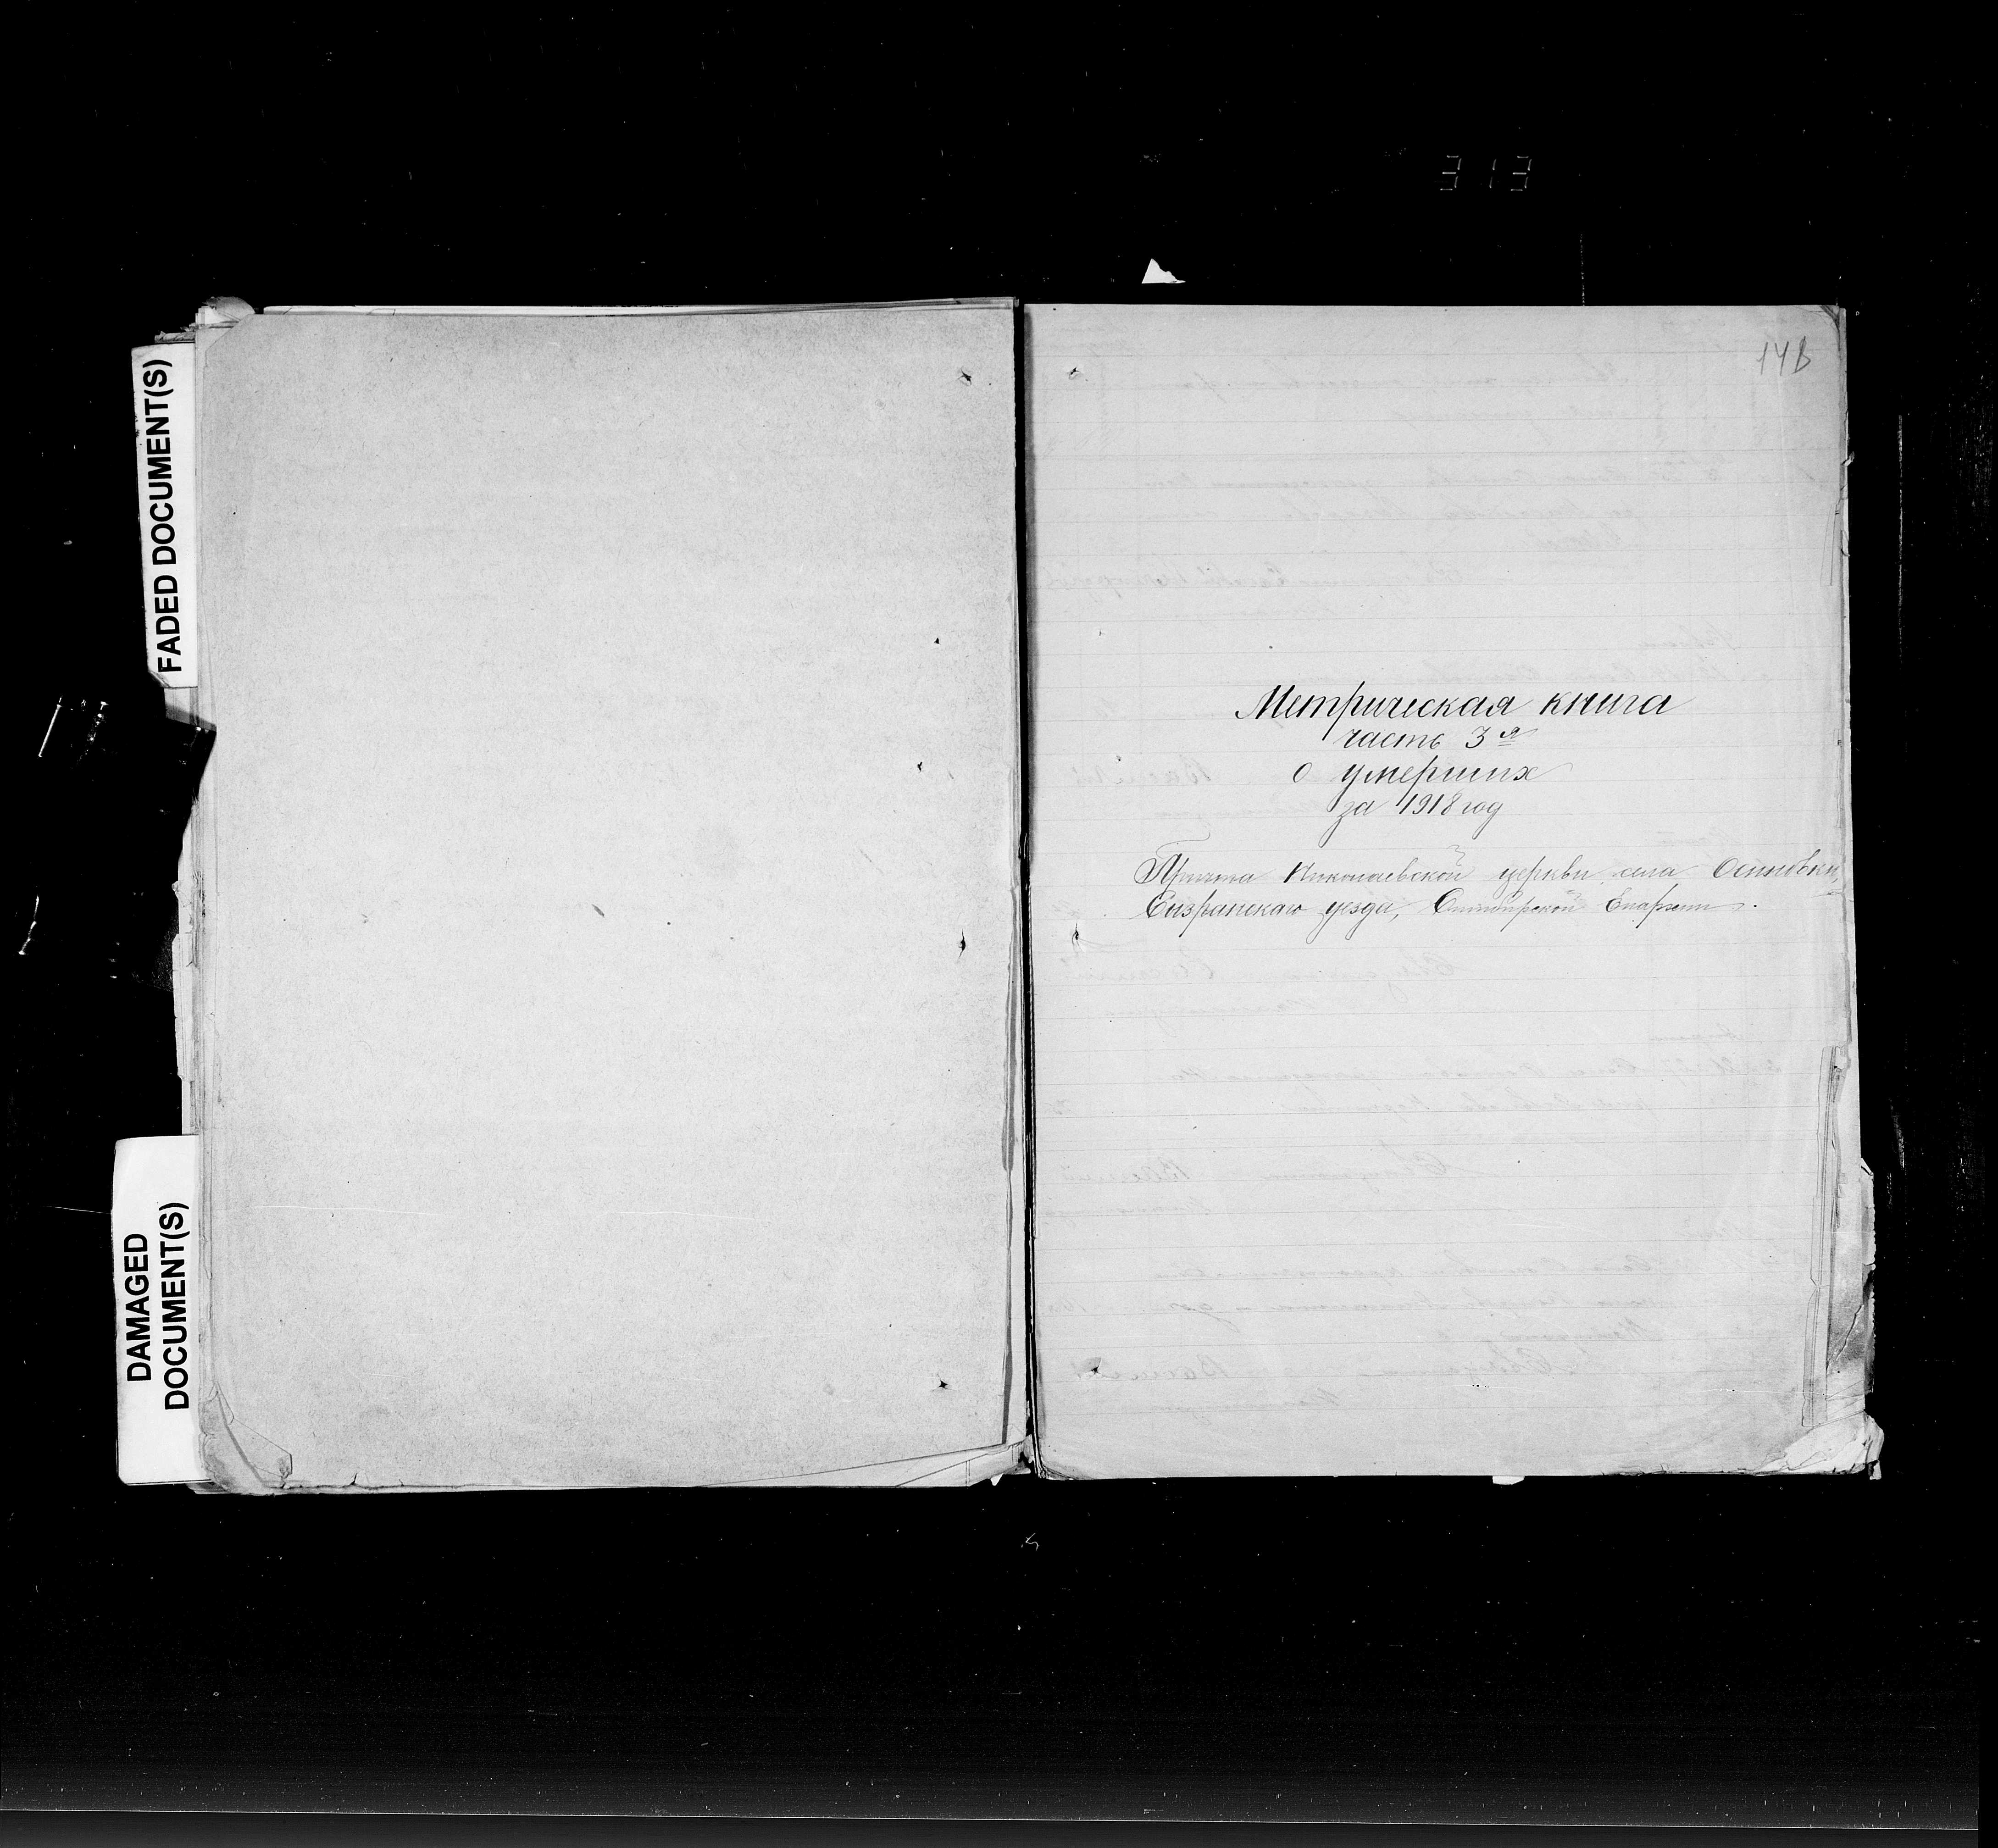 313
FADED DOCUMENT(S)
DAMAGED
DOCUMENT(S)
Метрическая книга
часть 3я
о умерших
за 1918 год
Причта Николаевской церкви села Осиновки,
Сызранскаго уезда, Симбирской Епархии.